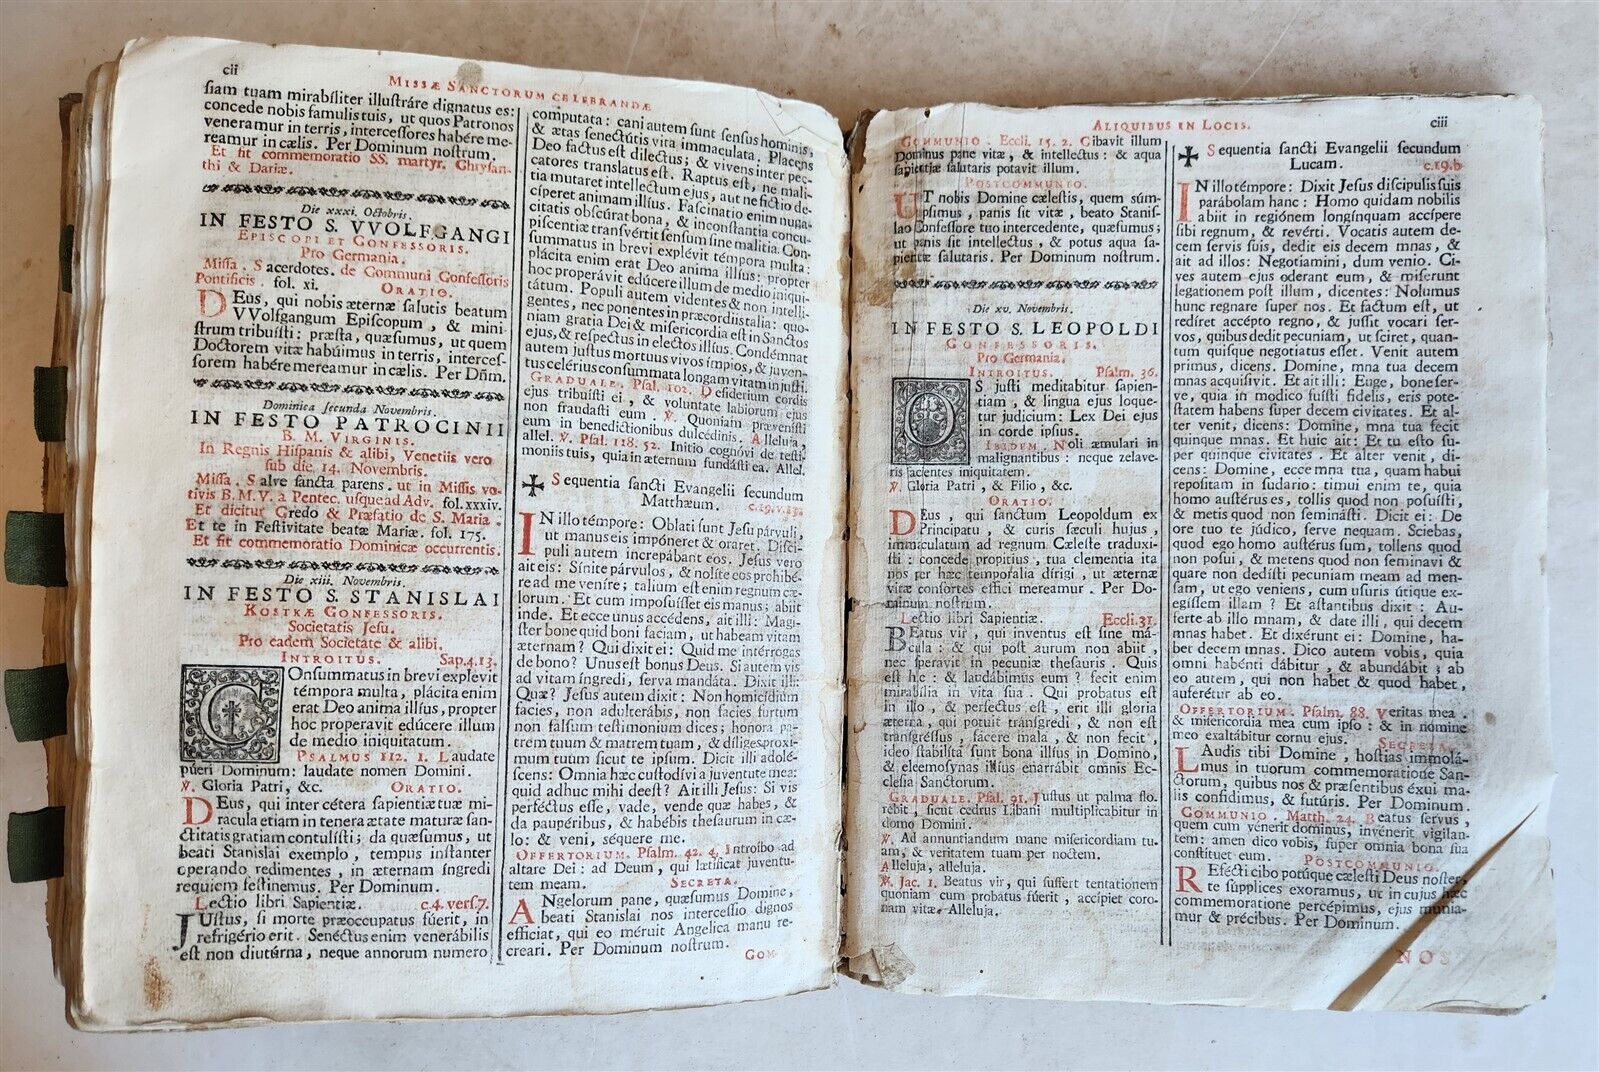 cii
MISSÆ SANCTORUM CELEBRANDÆ
siam tuam mirabíliter illustráre dignatus es:
concede nobis famulis tuis, ut quos Patronos
veneramur in terris, intercessores habére me-
reamur in cælis. Per Dominum nostrum.
Et fit commemoratio SS. martyr. Chrysan-
thi & Dariæ.
Die xxxi. Octobris.
IN FESTO S. VVOLFGANGI
EPISCOPI ET CONFESSORIS.
Pro Germania.
Missa. Sacerdotes. de Communi Confessoris
Pontificis. fol. xi. ORATIO.
DEus, qui nobis æternæ salutis beatum
VVolfgangum Episcopum, & mini-
strum tribuísti: præsta, quæsumus, ut quem
Doctorem vitæ habúimus in terris, interces-
sorem habére mereamur in cælis. Per Dn̄m.
Dominica secunda Novembris.
IN FESTO PATROCINII
B. M. VIRGINIS.
In Regnis Hispanis & alibi, Venetiis vero
sub die 14. Novembris.
Missa. Salve sancta parens. ut in Missis vo-
tivis B.M.V. a Pentec. usque ad Adv. fol. xxxiv.
Et dicitur Credo & Præfatio de S. Maria.
Et te in Festivitate beatæ Mariæ. fol. 175.
Et fit commemoratio Dominicæ occurrentis.
Die xiii. Novembris.
IN FESTO S. STANISLAI
KOSTKÆ CONFESSORIS.
Societatis Jesu.
Pro eadem Societate & alibi.
INTROITUS. Sap. 4. 13.
COnsummatus in brevi explevit
témpora multa, plácita enim
erat Deo anima illíus, propter
hoc properavit edúcere illum
de medio iniquitatum.
PSALMUS 112. 1. Laudate
púeri Dominum: laudate nomen Domini.
℣. Gloria Patri, &c. ORATIO.
DEus, qui inter cétera sapientiæ tuæ mi-
racula etiam in tenera ætate maturæ san-
ctitatis gratiam contulísti; da quæsumus, ut
beati Stanislai exemplo, tempus instanter
operando redimentes, in æternam íngredi
requiem festinemus. Per Dominum.
Lectio libri Sapientiæ. c. 4. vers. 7.
JUstus, si morte præoccupatus fúerit, in
refrigério erit. Senéctus enim venerábilis
est non diutúrna, neque annorum numero
computata: cani autem sunt sensus hominis,
& ætas senectútis vita immaculata. Placens
Deo factus est dilectus; & vivens inter pec-
catores translatus est. Raptus est, ne mali-
tia mutaret intellectum ejus, aut ne fictio de-
cíperet animam illíus. Fascinatio enim nuga-
citatis obscúrat bona, & inconstantia concu-
piscentiæ transvértit sensum sine malitia. Con-
summatus in brevi explévit témpora multa:
plácita enim erat Deo anima illíus; propter
hoc properávit edúcere illum de medio iniqui-
tátum. Populi autem videntes & non intelli-
gentes, nec ponentes in præcordiis talia: quo-
niam gratia Dei & misericordia est in Sanctos
ejus, & respectus in electos illíus. Condémnat
autem justus mortuus vivos ímpios, & juven-
tus celérius consummata longam vitam injusti.
GRADUALE. Psal. 102. Desiderium cordis
ejus tribuísti ei, & voluntate labiorum ejus
non fraudasti eum. ℣. Quoniam prævenísti
eum in benedictionibus dulcédinis. Alleluja,
allel. ℣. Psal. 118. 52. Initio cognóvi de testi-
moniis tuis, quia in æternum fundásti ea. Allel.
✠ Sequentia sancti Evangelii secundum
Matthæum. c. 19. v. 13.
IN illo témpore: Oblati sunt Jesu párvuli,
ut manus eis impóneret & oraret. Disci-
puli autem increpábant eos. Jesus vero
ait eis: Sínite párvulos, & nolíte eos prohibé-
re ad me veníre; talium est enim regnum cæ-
lorum. Et cum imposuísset eis manus; abiit
inde. Et ecce unus accédens, ait illi: Magi-
ster bone quid boni faciam, ut habeam vitam
æternam? Qui dixit ei: Quid me intérrogas
de bono? Unus est bonus Deus. Si autem vis
ad vitam íngredi, serva mandáta. Dixit illi:
Quæ? Jesus autem dixit: Non homicídium
facies, non adulterábis, non facies furtum
non falsum testimonium dices; honora pa-
trem tuum & matrem tuam, & díliges proxi-
mum tuum sicut te ipsum. Dicit illi adolé-
scens: Omnia hæc custodívi a juventute mea:
quid adhuc mihi deest? Ait illi Jesus: Si vis
perféctus esse, vade, vende quæ habes, &
da paupéribus, & habébis thesaurum in cæ-
lo: & veni, séquere me.
OFFERTORIUM. Psalm. 42. 4. Introíbo ad
altare Dei: ad Deum, qui lætificat juventu-
tem meam. SECRETA.
ANgelorum pane, quæsumus Domine,
beati Stanislai nos intercessio dignos
efficiat, qui eo méruit Angelica manu re-
creari. Per Dominum nostrum.
COM-
ALIQUIBUS IN LOCIS. ciii
COMMUNIO. Eccli. 15. 2. Cibavit illum
Dominus pane vitæ, & intellectus: & aqua
sapiéntiæ salutaris potavit illum.
POSTCOMMUNIO.
UT nobis Domine cælestis, quem súm-
psimus, panis sit vitæ, beato Stanis-
lao Confessore tuo intercedente, quæsumus;
ut panis sit intellectus, & potus aqua sa-
pientiæ salutaris. Per Dominum nostrum.
Die xv. Novembris.
IN FESTO S. LEOPOLDI
CONFESSORIS.
Pro Germania.
INTROITUS. Psalm. 36.
OS justi meditabitur sapien-
tiam, & lingua ejus loque-
tur judicium: Lex Dei ejus
in corde ipsius.
IBIDEM. Noli æmulari in
malignantibus: neque zelave-
ris facientes iniquitatem.
℣. Gloria Patri, & Filio, &c.
ORATIO.
DEus, qui sanctum Leopoldum ex
Principatu, & curis sæculi hujus,
immaculatum ad regnum Cæleste traduxí-
sti: concede propitius, tua clementia ita
nos per hæc temporalia dírigi, ut æternæ
vitæ consortes effici mereamur. Per Do-
minum nostrum.
Lectio libri Sapientiæ. Eccli. 31.
BEatus vir, qui inventus est sine má-
cula: & qui post aurum non abiit,
nec speravit in pecuniæ thesauris. Quis
est hic: & laudábimus eum? fecit enim
mirabília in vita sua. Qui probatus est
in illo, & perfectus est, erit illi gloria
æterna, qui potuit transgredi, & non est
transgréssus, facere mala, & non fecit,
ideo stabilíta sunt bona illíus in Domino,
& eleemosynas illíus enarrábit omnis Ec-
clesia Sanctorum.
GRADUALE. Psal. 91. Justus ut palma flo-
rébit, sicut cedrus Libani multiplicabitur in
domo Domini.
℣. Ad annuntiandum mane misericordiam tu-
am, & veritatem tuam per noctem.
Alleluja, alleluja.
℣. Jac. 1. Beatus vir, qui suffert tentationem
quoniam cum probatus fúerit, accipiet coro-
nam vitæ. Alleluja.
✠ Sequentia sancti Evangelii secundum
Lucam. c. 19. b
IN illo témpore: Dixit Jesus discipulis suis
parábolam hanc: Homo quidam nobilis
abiit in regiónem longínquam accípere
sibi regnum, & revérti. Vocatis autem de-
cem servis suis, dedit eis decem mnas, &
ait ad illos: Negotiamini, dum venio. Ci-
ves autem ejus oderant eum, & miserunt
legationem post illum, dicentes: Nolumus
hunc regnare super nos. Et factum est, ut
redíret accépto regno, & jussit vocari ser-
vos, quibus dedit pecuniam, ut sciret, quan-
tum quisque negotiatus esset. Venit autem
primus, dicens. Domine, mna tua decem
mnas acquisivit. Et ait illi: Euge, bone ser-
ve, quia in modico fuísti fidelis, eris pote-
statem habens super decem civitates. Et al-
ter venit, dicens: Domine, mna tua fecit
quinque mnas. Et huic ait: Et tu esto su-
per quinque civitates. Et alter venit, di-
cens: Domine, ecce mna tua, quam habui
repositam in sudario: timui enim te, quia
homo austérus es, tollis quod non posuísti,
& metis quod non seminásti. Dicit ei: De
ore tuo te júdico, serve nequam. Sciebas,
quod ego homo austérus sum, tollens quod
non posui, & metens quod non seminavi &
quare non dedísti pecuniam meam ad men-
sam, ut ego veniens, cum usuris útique ex-
egissem illam? Et astantibus dixit: Au-
ferte ab illo mnam, & date illi, qui decem
mnas habet. Et dixérunt ei: Domine, ha-
bet decem mnas. Dico autem vobis, quia
omni habénti dábitur, & abundábit; ab
eo autem, qui non habet & quod habet,
auferétur ab eo.
OFFERTORIUM. Psalm. 88. Veritas mea,
& misericordia mea cum ipso: & in nomine
meo exaltábitur cornu ejus. SECRETA.
LAudis tibi Domine, hostias immolá-
mus in tuorum commemoratione San-
ctorum, quibus nos & præsentibus éxui ma-
lis confidimus, & futúris. Per Dominum.
COMMUNIO. Matth. 24. Beatus servus,
quem cum vénerit dominus, invénerit vigilan-
tem: amen dico vobis, super omnia bona sua
constítuet eum. POSTCOMMUNIO.
REfécti cibo potúque cælesti Deus noster,
te supplices exoramus, ut in cujus hæc
commemoratione percépimus, ejus munia-
mur & précibus. Per Dominum.
NOS